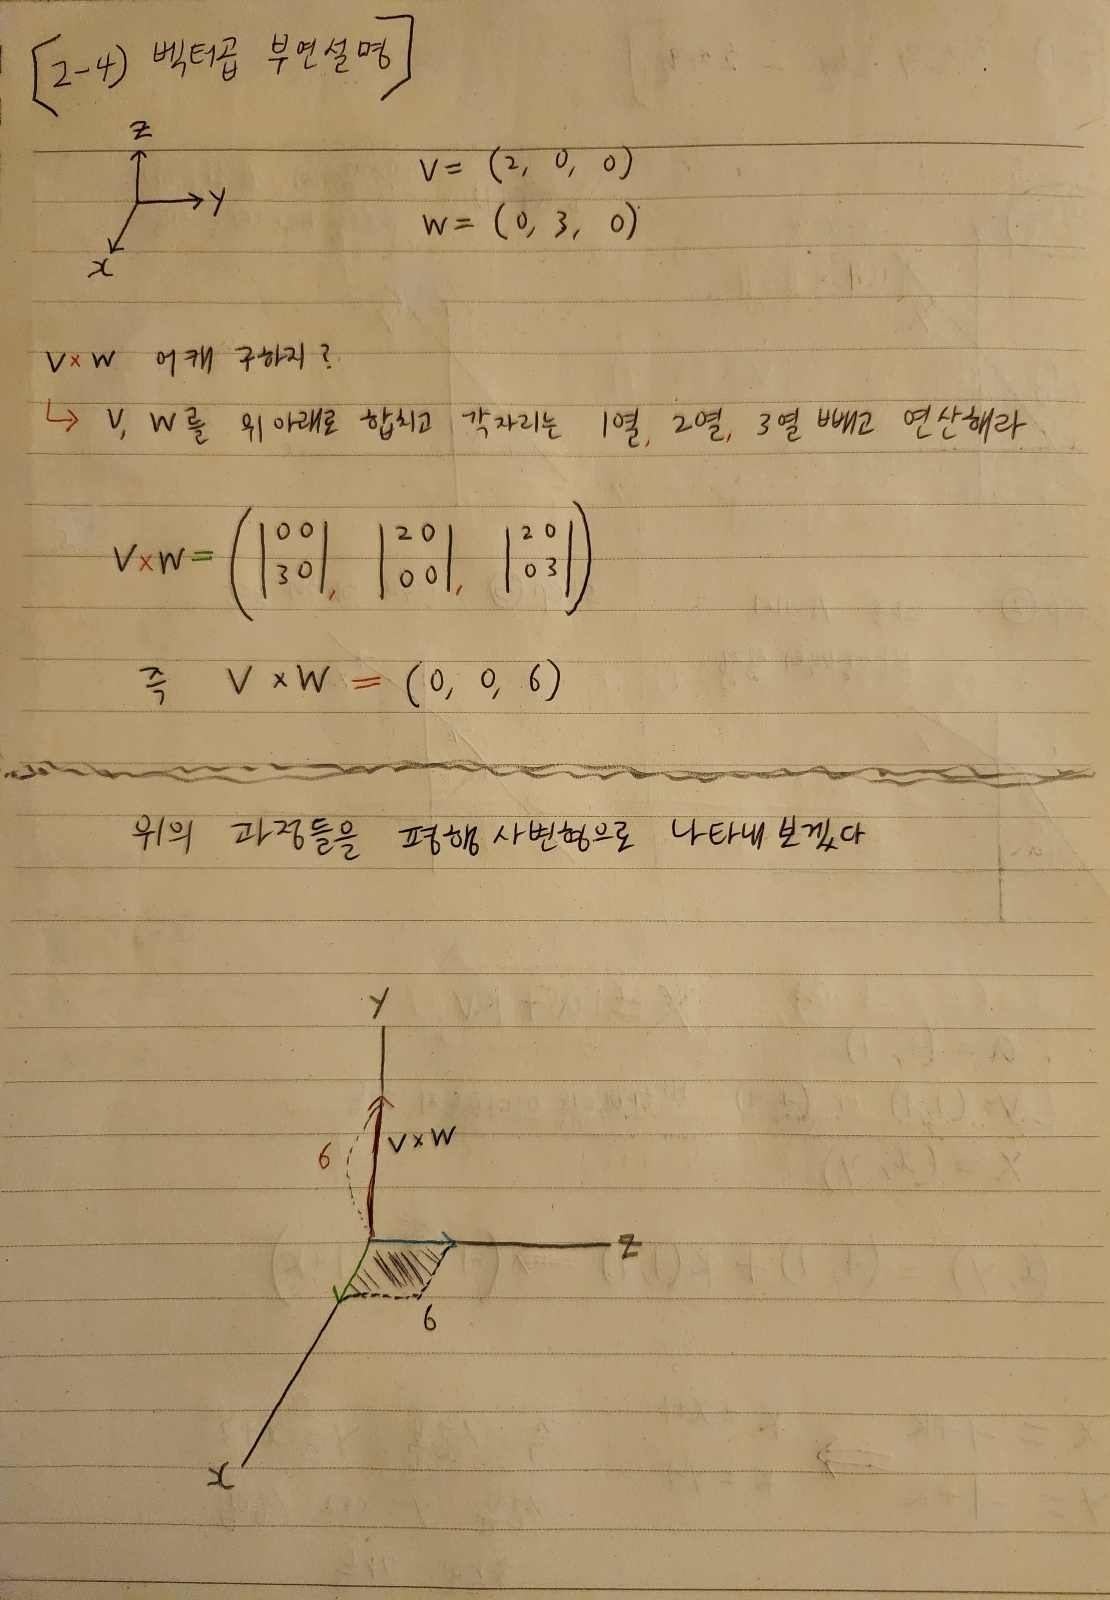 [2-4) 벡터곱 부연설명]
Z
Y
X
V = (2, 0, 0)
W = (0, 3, 0)
V×W 어캐 구하지?
↳ V, W를 위아래로 합치고 각자리는 1열, 2열, 3열 빼고 연산해라
V×W = (|0 0|, |2 0|, |2 0|)
|3 0| |0 0| |0 3|
즉 V×W = (0, 0, 6)
위의 과정들을 평행사변형으로 나타내 보겠다
Y
6 V×W
Z
6
X